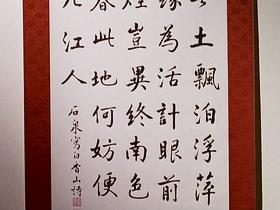 土飄泊浮萍
緣為活計眼前
煙豈異終南色
春此地何妨便
九江人
石泉寫白香山詩